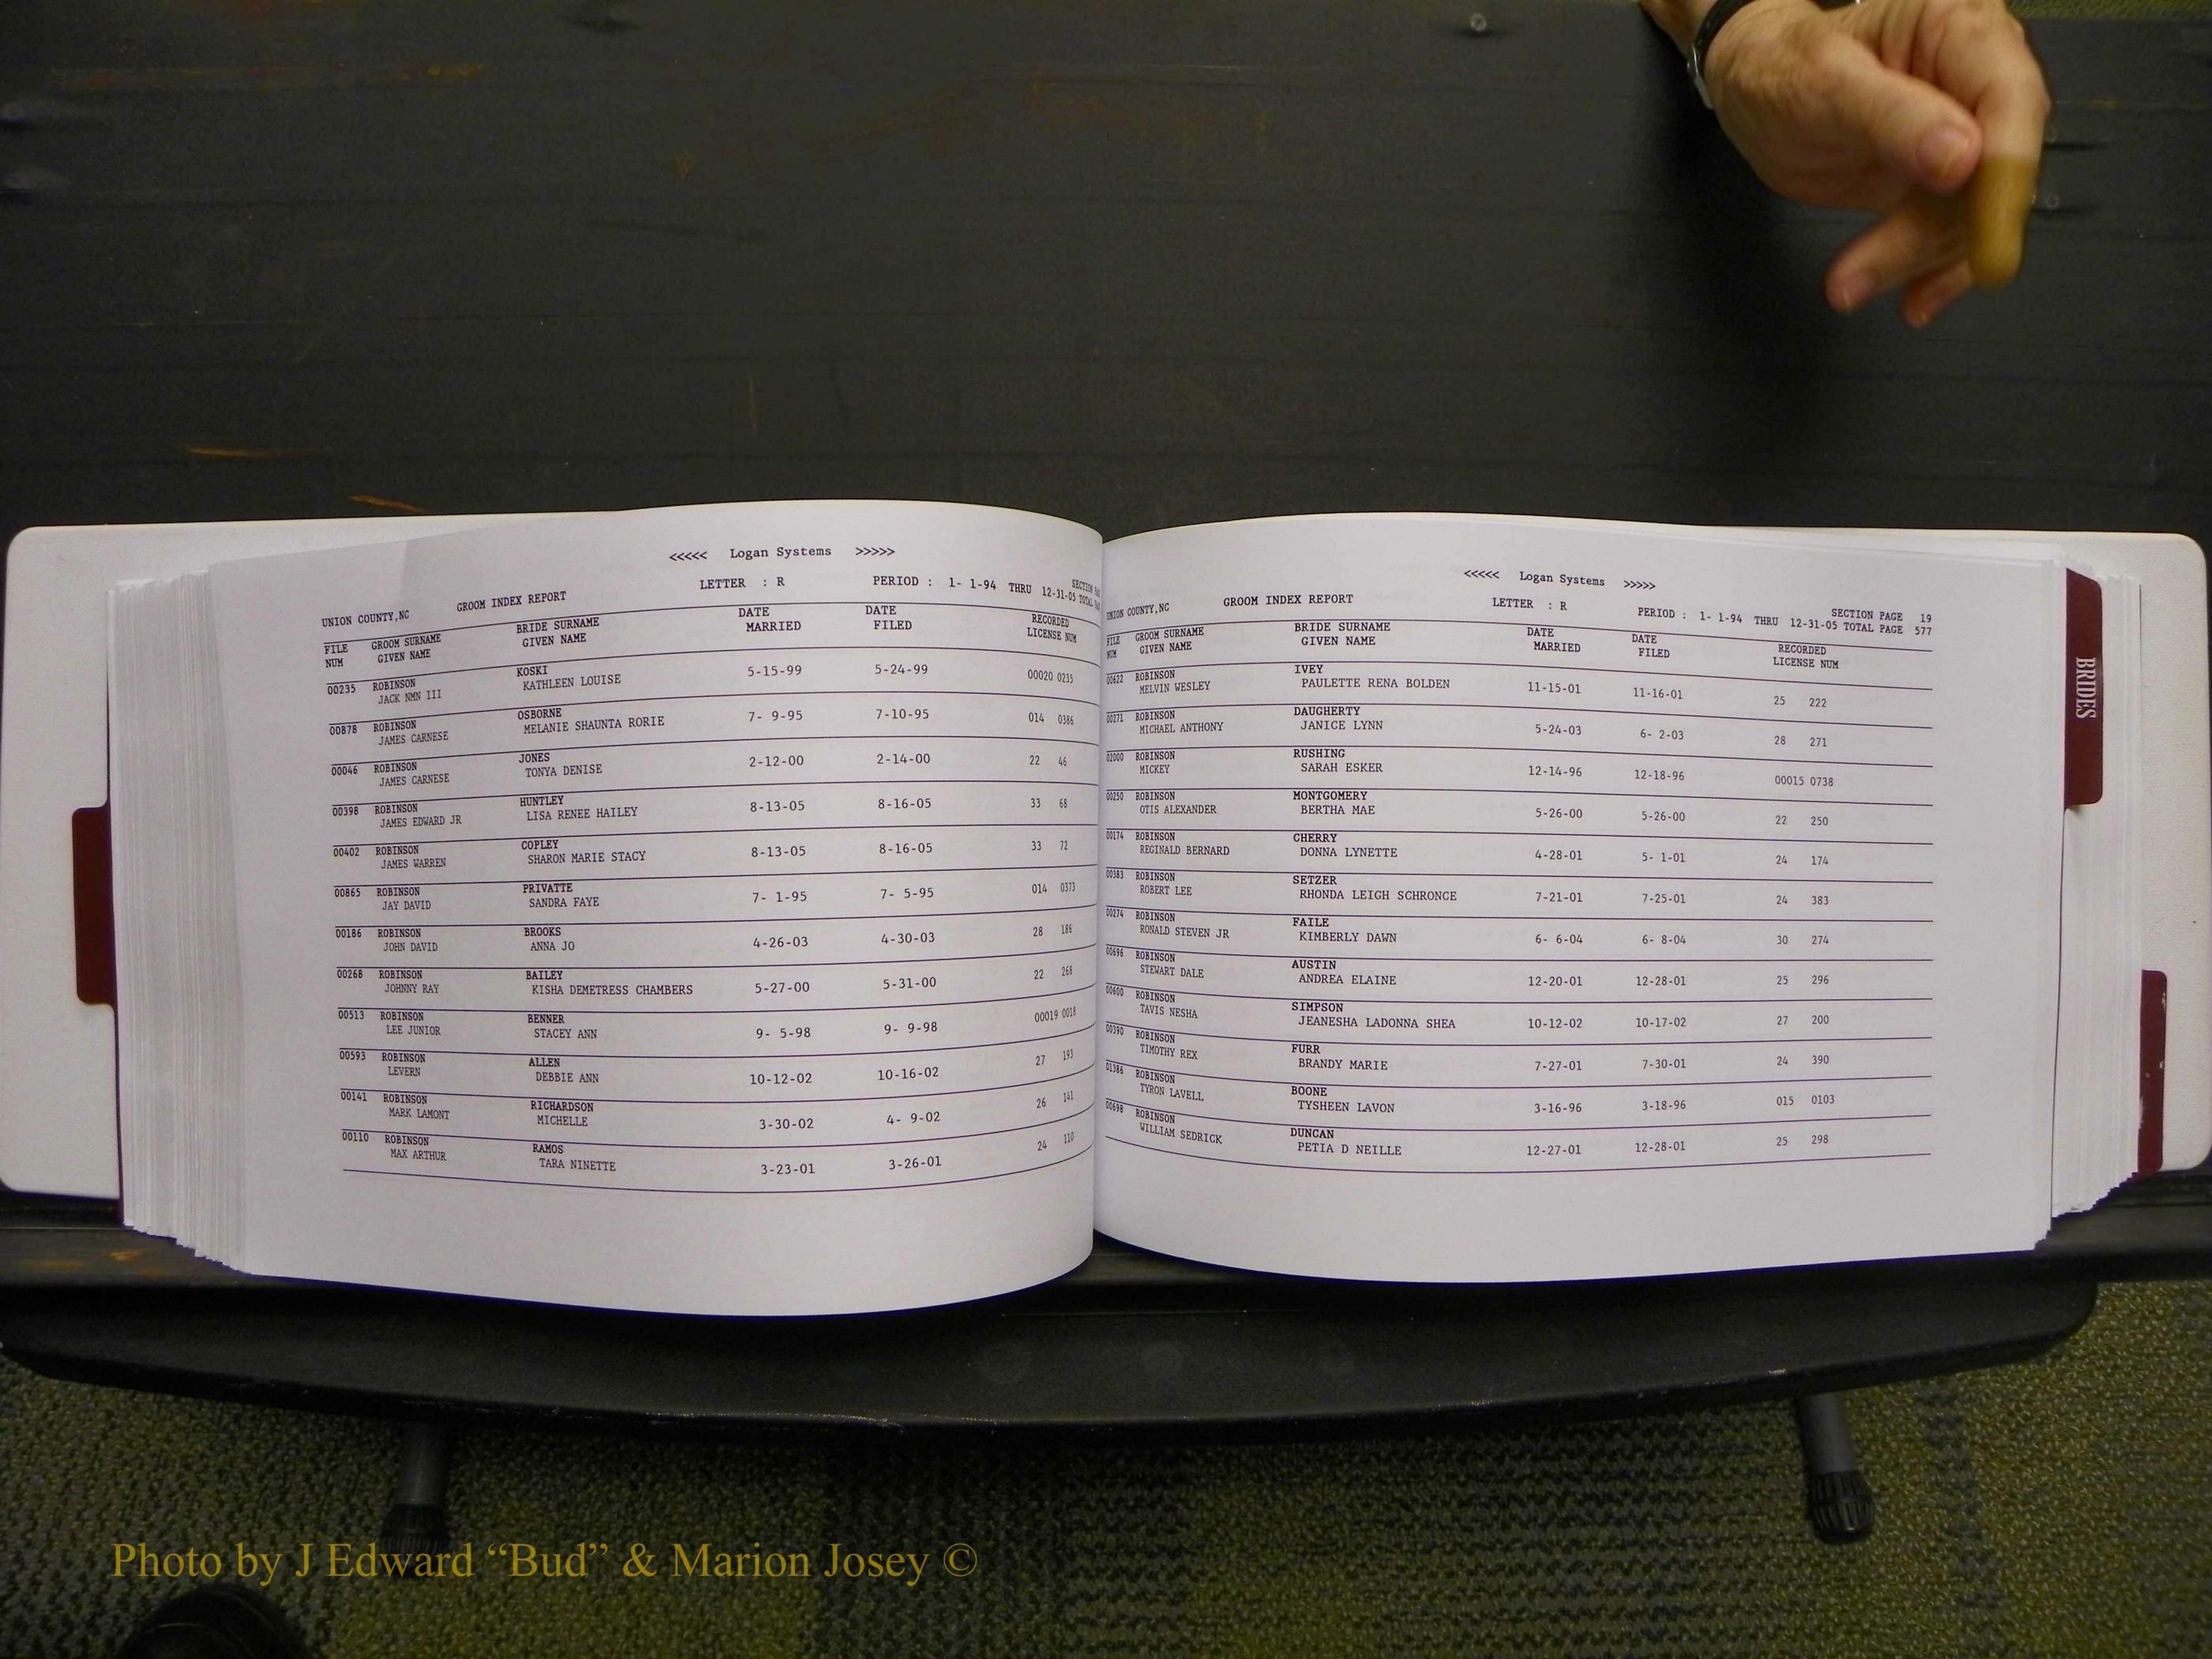 <<<<< Logan Systems >>>>>
UNION COUNTY,NC GROOM INDEX REPORT LETTER : R PERIOD : 1- 1-94 THRU 12-31-05
FILE GROOM SURNAME BRIDE SURNAME DATE DATE RECORDED
NUM GIVEN NAME GIVEN NAME MARRIED FILED LICENSE NUM
00235 ROBINSON KOSKI 5-15-99 5-24-99 00020 0235
JACK NMN III KATHLEEN LOUISE
00878 ROBINSON OSBORNE 7- 9-95 7-10-95 014 0386
JAMES CARNESE MELANIE SHAUNTA RORIE
00046 ROBINSON JONES 2-12-00 2-14-00 22 46
JAMES CARNESE TONYA DENISE
00398 ROBINSON HUNTLEY 8-13-05 8-16-05 33 68
JAMES EDWARD JR LISA RENEE HAILEY
00402 ROBINSON COPLEY 8-13-05 8-16-05 33 72
JAMES WARREN SHARON MARIE STACY
00865 ROBINSON PRIVATTE 7- 1-95 7- 5-95 014 0373
JAY DAVID SANDRA FAYE
00186 ROBINSON BROOKS 4-26-03 4-30-03 28 186
JOHN DAVID ANNA JO
00268 ROBINSON BAILEY 5-27-00 5-31-00 22 268
JOHNNY RAY KISHA DEMETRESS CHAMBERS
00513 ROBINSON BENNER 9- 5-98 9- 9-98 00019 0018
LEE JUNIOR STACEY ANN
00593 ROBINSON ALLEN 10-12-02 10-16-02 27 193
LEVERN DEBBIE ANN
00141 ROBINSON RICHARDSON 3-30-02 4- 9-02 26 141
MARK LAMONT MICHELLE
00110 ROBINSON RAMOS 3-23-01 3-26-01 24 110
MAX ARTHUR TARA NINETTE
<<<<< Logan Systems >>>>>
UNION COUNTY,NC GROOM INDEX REPORT LETTER : R PERIOD : 1- 1-94 THRU 12-31-05 SECTION PAGE 19
TOTAL PAGE 577
FILE GROOM SURNAME BRIDE SURNAME DATE DATE RECORDED
NUM GIVEN NAME GIVEN NAME MARRIED FILED LICENSE NUM
00622 ROBINSON IVEY 11-15-01 11-16-01 25 222
MELVIN WESLEY PAULETTE RENA BOLDEN
00271 ROBINSON DAUGHERTY 5-24-03 6- 2-03 28 271
MICHAEL ANTHONY JANICE LYNN
02000 ROBINSON RUSHING 12-14-96 12-18-96 00015 0738
MICKEY SARAH ESKER
00250 ROBINSON MONTGOMERY 5-26-00 5-26-00 22 250
OTIS ALEXANDER BERTHA MAE
00174 ROBINSON CHERRY 4-28-01 5- 1-01 24 174
REGINALD BERNARD DONNA LYNETTE
00383 ROBINSON SETZER 7-21-01 7-25-01 24 383
ROBERT LEE RHONDA LEIGH SCHRONCE
00274 ROBINSON FAILE 6- 6-04 6- 8-04 30 274
RONALD STEVEN JR KIMBERLY DAWN
00696 ROBINSON AUSTIN 12-20-01 12-28-01 25 296
STEWART DALE ANDREA ELAINE
00600 ROBINSON SIMPSON 10-12-02 10-17-02 27 200
TAVIS NESHA JEANESHA LADONNA SHEA
00390 ROBINSON FURR 7-27-01 7-30-01 24 390
TIMOTHY REX BRANDY MARIE
01386 ROBINSON BOONE 3-16-96 3-18-96 015 0103
TYRON LAVELL TYSHEEN LAVON
00698 ROBINSON DUNCAN 12-27-01 12-28-01 25 298
WILLIAM SEDRICK PETIA D NEILLE
BRIDES
Photo by J Edward “Bud” & Marion Josey ©